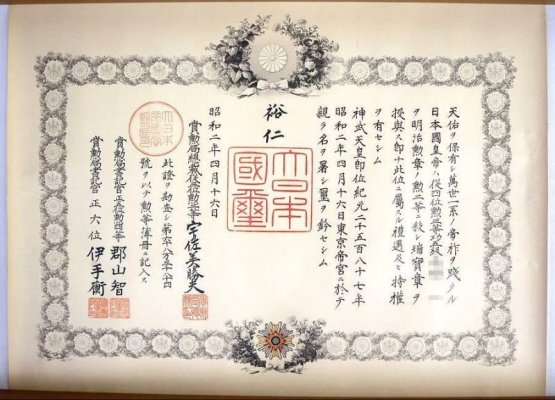 天佑ヲ保有シ萬世一系ノ帝祚ヲ踐タル
日本國皇帝ハ從四位勲三等
ヲ明治勲章ノ勲二等ニ敍シ瑞寶章ヲ
授與ス即チ此位ニ屬スル禮遇及ヒ特權
ヲ有セシム
神武天皇即位紀元二千五百八十七年
昭和二年四月十六日東京帝宮ニ於テ
親ラ名ヲ署シ璽ヲ鈐セシム
裕仁
大日本國璽
昭和二年四月十六日
賞勲局總裁從四位勲二等宇佐美勝夫
此證ヲ勘査シ
號ヲ以テ勲等簿冊ニ記入ス
賞勲局書記官 郡山智
賞勲局書記官正六位 伊手衡